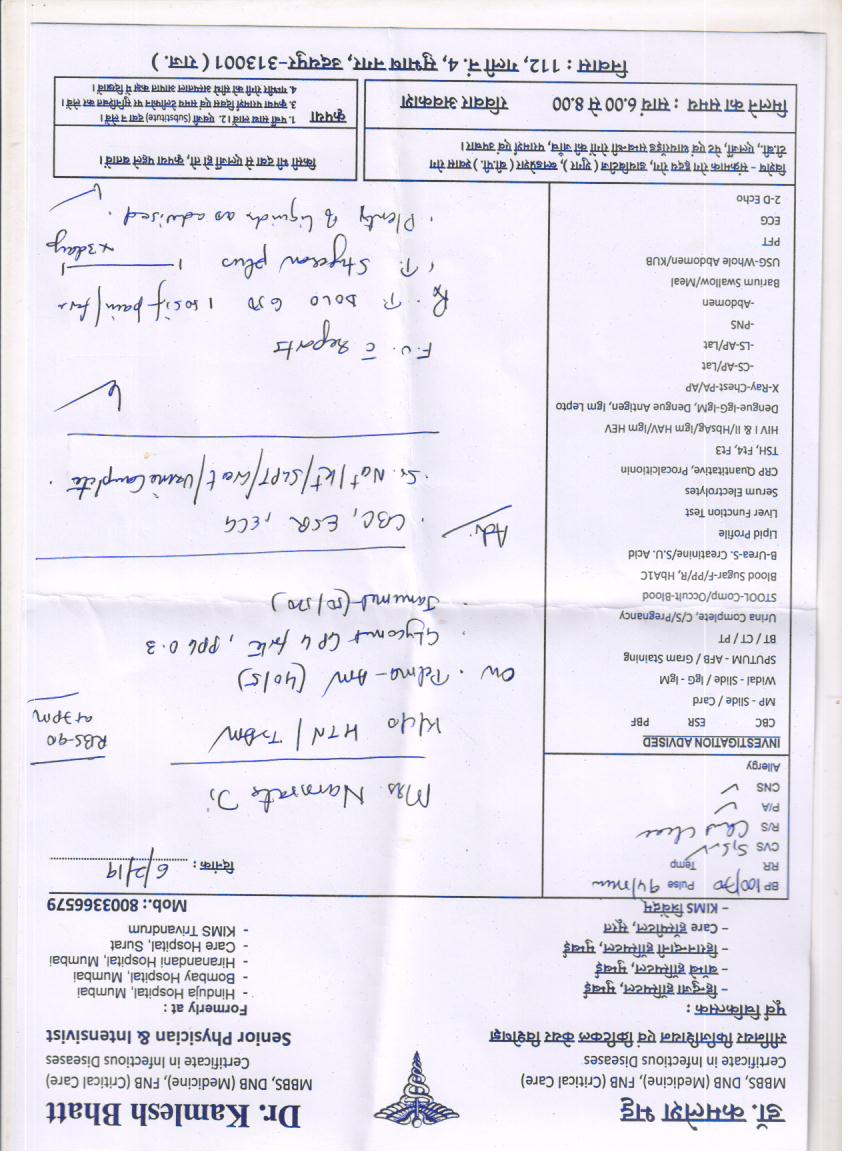 डॉ. कमलेश भट्ट
MBBS, DNB (Medicine), FNB (Critical Care)
Certificate in Infectious Diseases
सीनियर फिजिशियन एवं क्रिटिकल केयर विशेषज्ञ
पूर्व चिकित्सक :
- हिन्दुजा हॉस्पिटल, मुम्बई
- बॉम्बे हॉस्पिटल, मुम्बई
- हिरानन्दानी हॉस्पिटल, मुम्बई
- केयर हॉस्पीटल, सूरत
- KIMS त्रिवेंद्रम
Dr. Kamlesh Bhatt
MBBS, DNB (Medicine), FNB (Critical Care)
Certificate in Infectious Diseases
Senior Physician & Intensivist
Formerly at :
- Hinduja Hospital, Mumbai
- Bombay Hospital, Mumbai
- Hiranandani Hospital, Mumbai
- Care Hospital, Surat
- KIMS Trivandrum
Mob.: 8003366579
BP 100/70 Pulse 94/min
RR Temp
CVS S1S2N
R/S Chest Clear
P/A
CNS
Allergy
INVESTIGATION ADVISED
CBC ESR PBF
MP - Slide / Card
Widal - Slide / IgG - IgM
SPUTUM - AFB / Gram Staining
BT / CT / PT
Urina Complete, C/S/Pregnancy
STOOL-Comp/Occult-Blood
Blood Sugar-F/PP/R, HbA1C
B-Urea-S. Creatinine/S.U. Acid
Lipid Profile
Liver Function Test
Serum Electrolytes
CRP Quantitative, Procalcitionin
TSH, Ft4, Ft3
HIV I & II/HbsAg/Igm HAV/Igm HEV
Dengue-IgG-IgM, Dengue Antigen, Igm Lepto
X-Ray-Chest-PA/AP
-CS-AP/Lat
-LS-AP/Lat
-PNS
-Abdomen
Barium Swallow/Meal
USG-Whole Abdomen/KUB
PFT
ECG
2-D Echo
दिनांक : 6/2/19
Mrs. Namrata Ji
K/c/o HTN / T2DM
RBS-90
at 7pm
On . Telma-Am (40/5)
. Glycomet GP4 forte, PPG 0.3
. Janumet (50/500)
Adv
. CBC, ESR, ECG
. Sr. Na+/K+/SGPT/Creat/Urine Complete
F.U. c̄ reports
Rx . T. DOLO 650 1 SOS if pain/fever
. T. Stycon plus 1 ——— 1 x3days
. Plenty of liquids as advised.
विशेष - संक्रामक रोग हृदय रोग, डायबिटीज ( शुगर ), ब्लडप्रेशर ( बी.पी. ) श्वास रोग
टी.बी., एलर्जी, पेट एवं थायरॉइड सम्बन्धी रोगों की जाँच, परामर्श एवं उपचार।
किसी भी दवा से एलर्जी हो तो, कृपया पहले बतावें।
मिलने का समय : सायं 6.00 से 8.00 रविवार अवकाश
कृपया
1. पर्ची साथ लावें। 2. एवजी (Substitute) दवा न लेवें।
3. कृपया परामर्श दिवस एवं समय टेलीफोन पर सुनिश्चित कर लेवें।
4. गम्भीर रोगी को सीधे अस्पताल आपात कक्ष में दिखावें।
निवास : 112, गली नं. 4, सुभाष नगर, उदयपुर-313001 ( राज. )